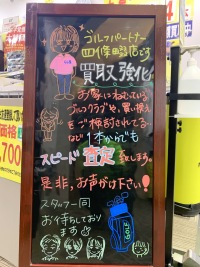 ゴルフパートナー
四條畷店です
買取強化
お家にねむっている
ゴルフクラブや、買い換え
をご検討されてる
など1本からでも
スピード査定致します。
是非、お声がけ下さい!
スタッフ一同
お待ちしており
ます
GOLF
価格
,700